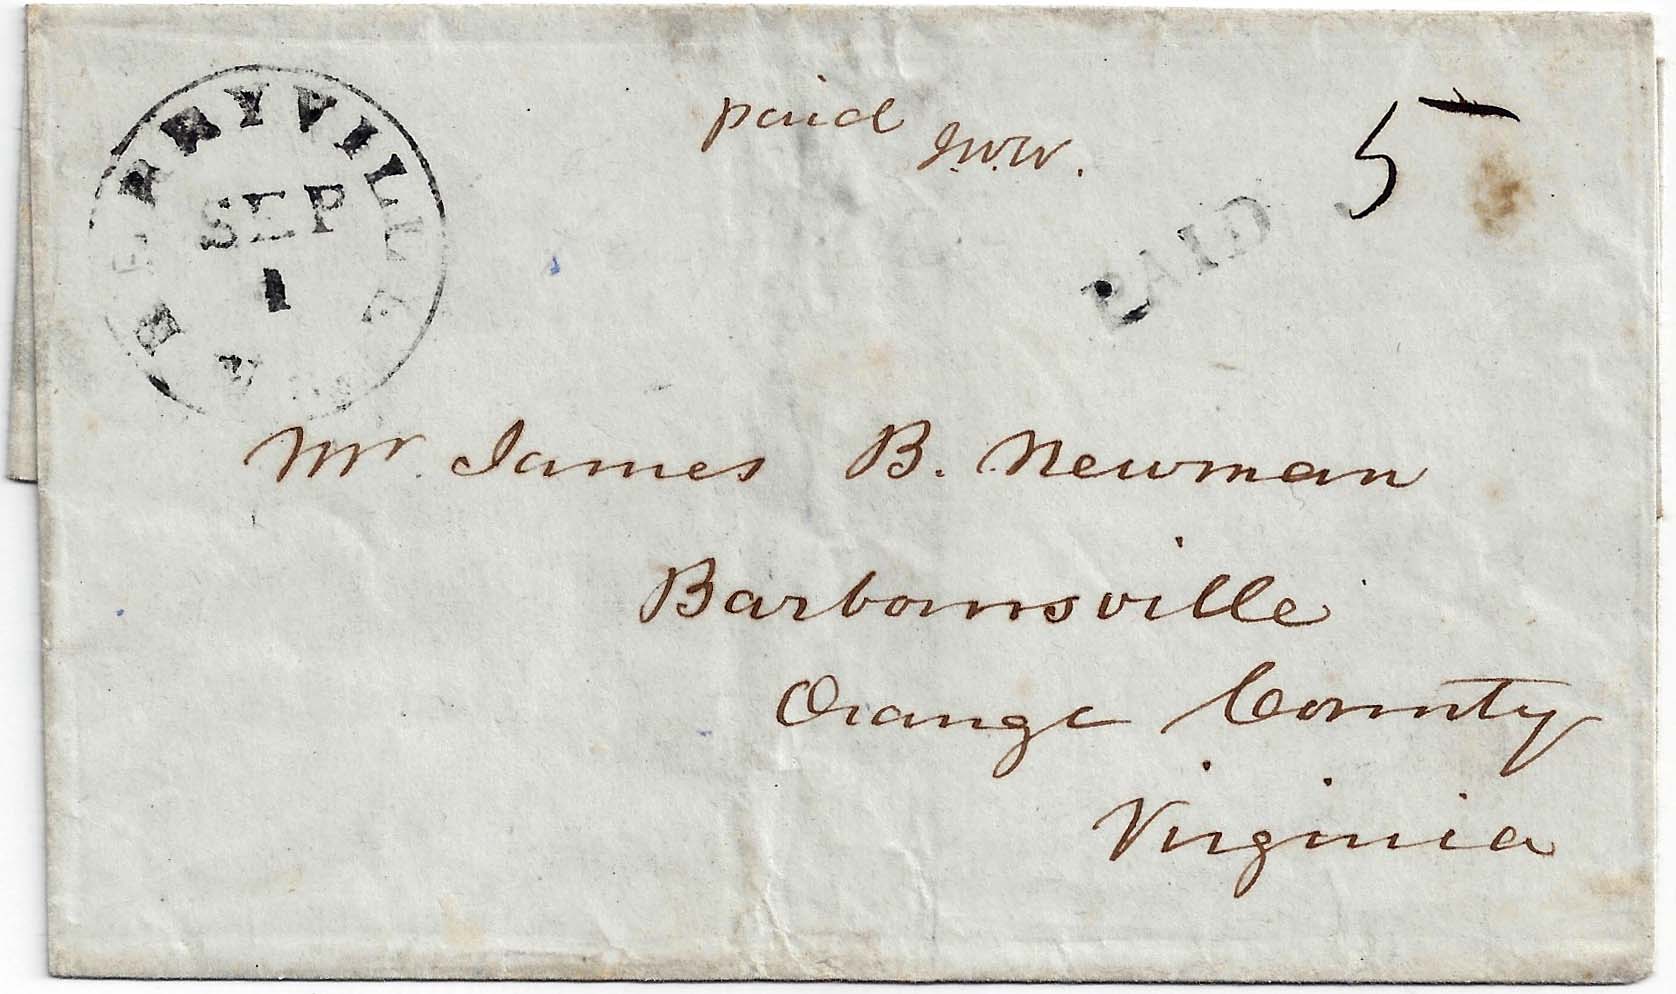 BERRYVILLE
SEP
1
VA
paid
J.W.W.
PAID
5
Mr. James B. Newman
Barboursville
Orange County
Virginia